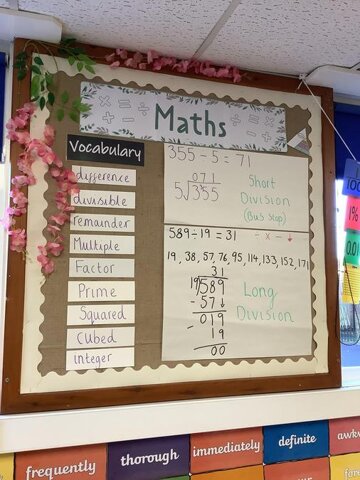 Maths
Vocabulary
difference
divisible
remainder
Multiple
Factor
Prime
Squared
Cubed
integer
355 - 5 = 71
071
5 355
Short
Division
(Bus stop)
589 ÷ 19 = 31 - × - ↓
19, 38, 57, 76, 95, 114, 133, 152, 171
31
19 589
- 57↓
019
- 19
00
Long
Division
100
1%
0.01
frequently
thorough
immediately
definite
awkw